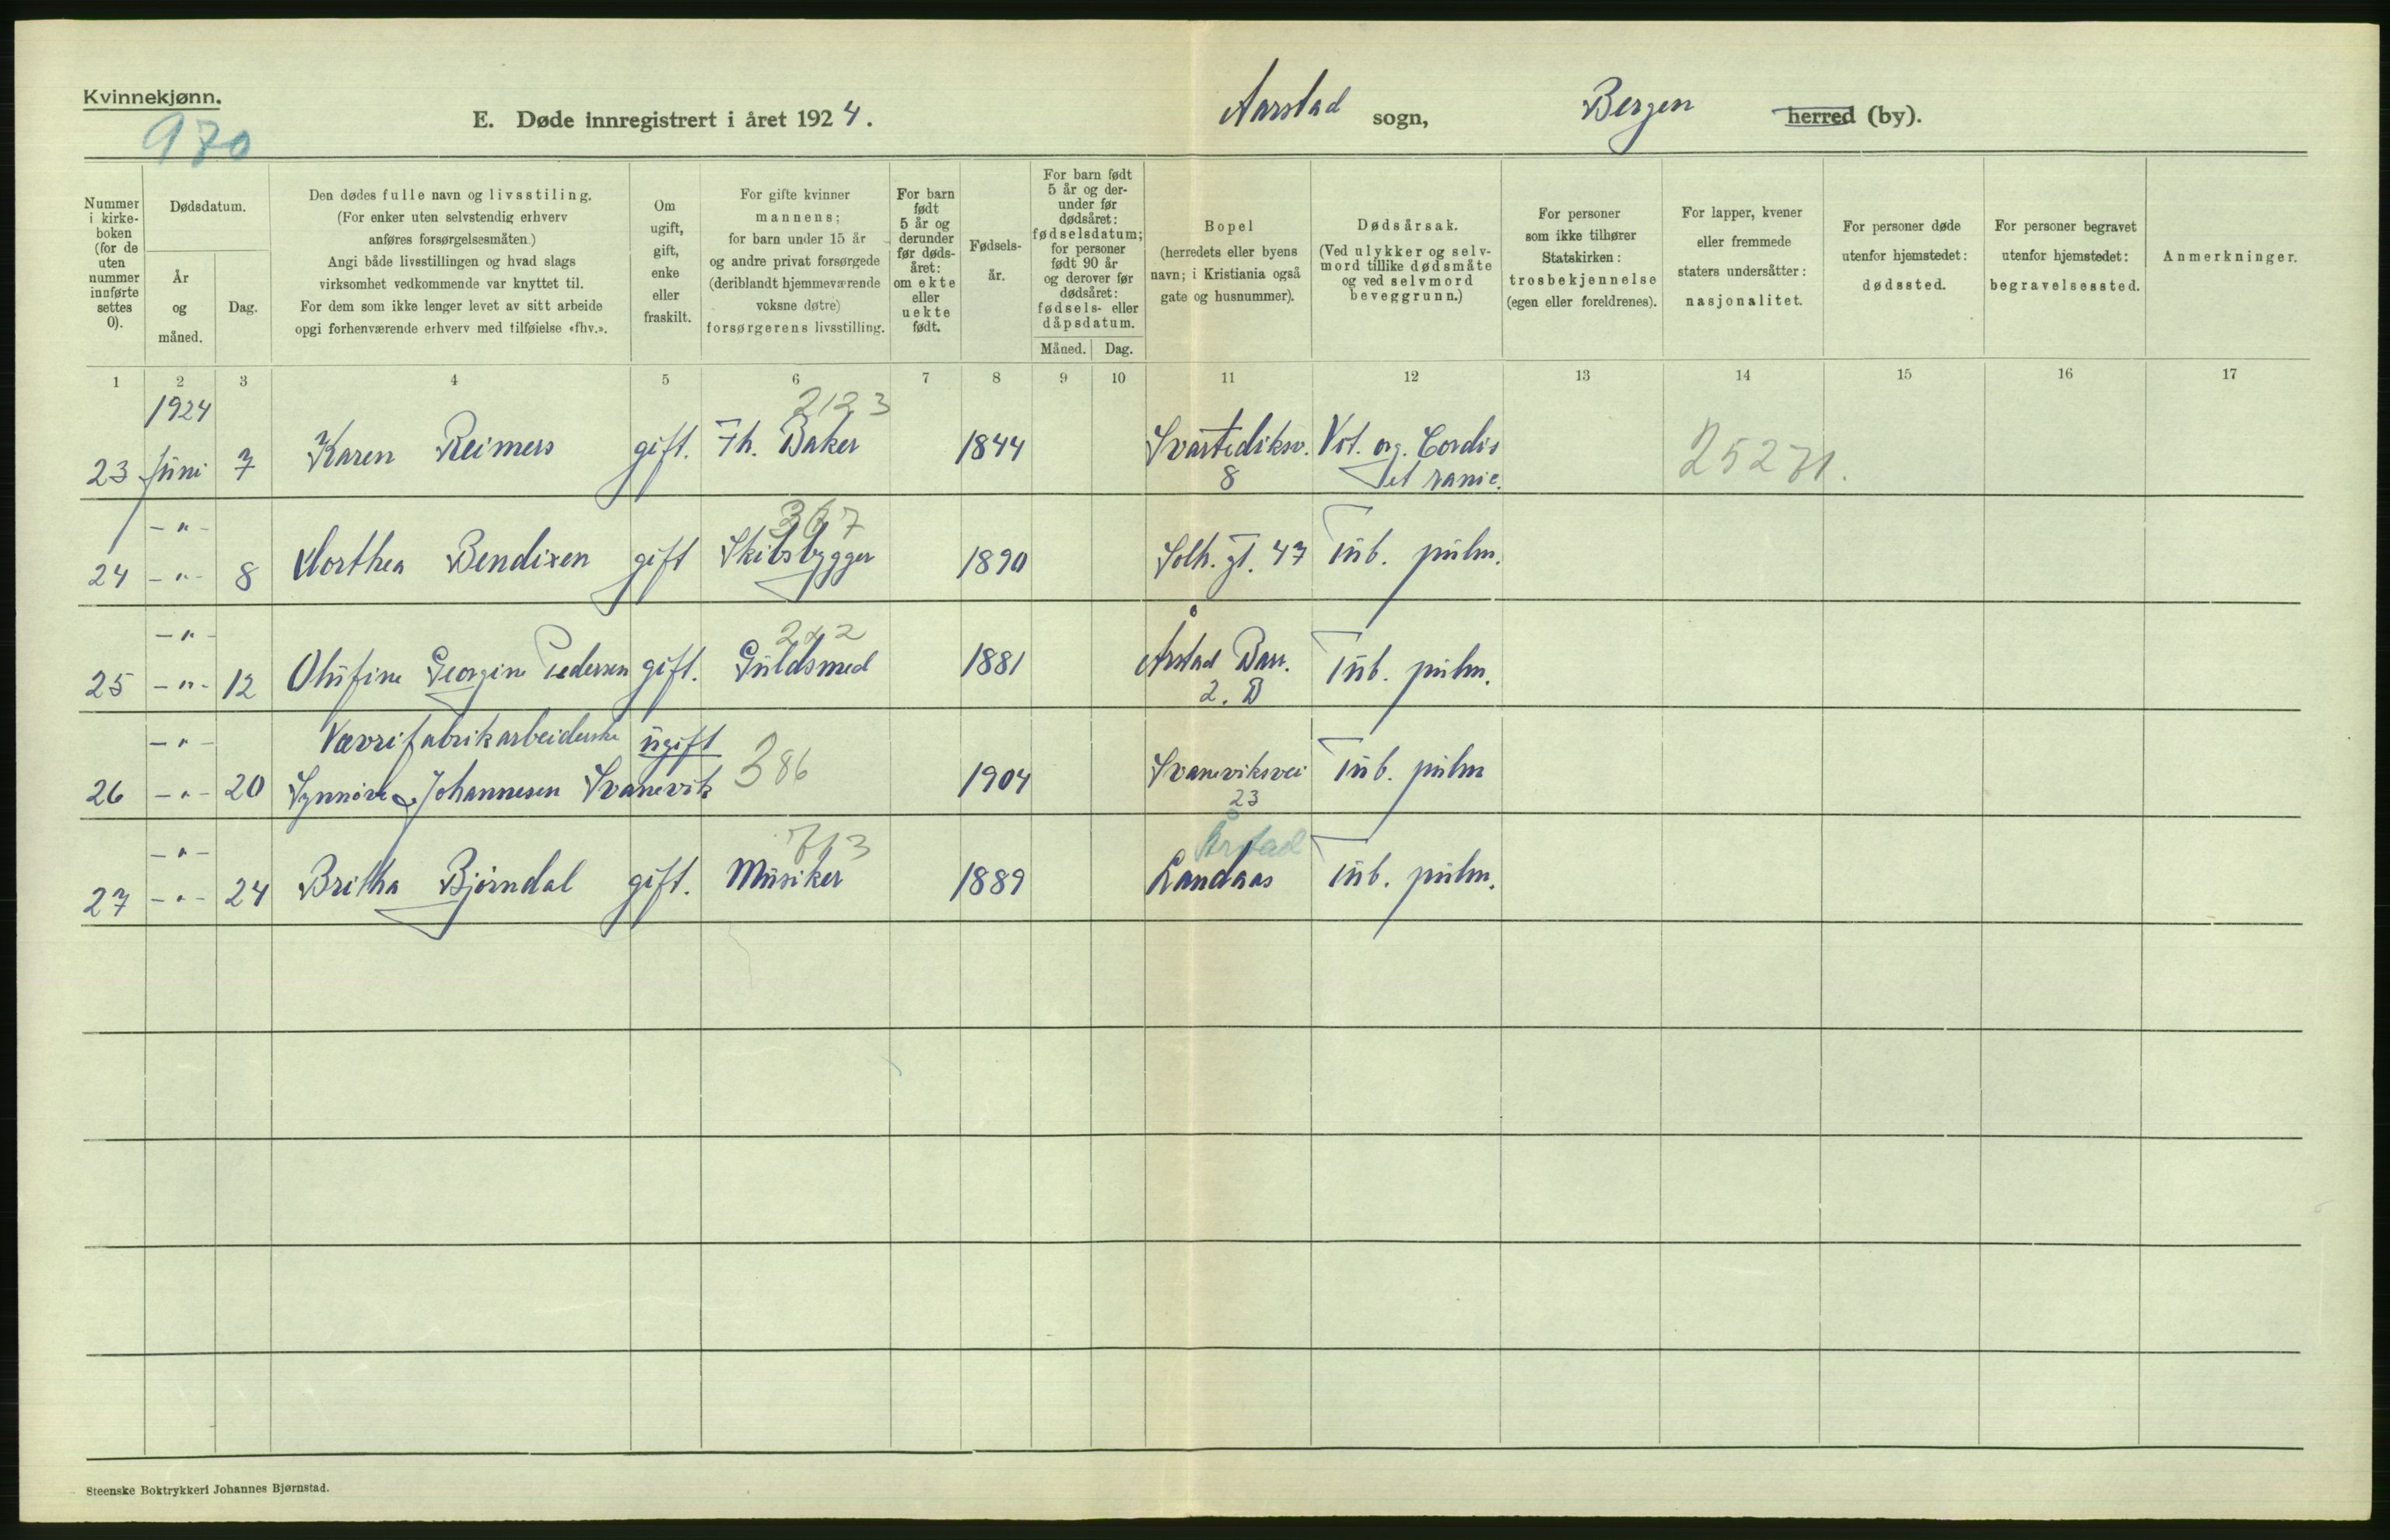 Kvinnekjønn.
970
E. Døde innregistrert i året 1924.
Aarstad sogn, Bergen herred (by).
Nummer i kirkeboken (for de uten nummer innførte settes 0).
Dødsdatum.
År og måned.
Dag.
Den dødes fulle navn og livsstilling.
(For enker uten selvstendig erhverv
anføres forsørgelsesmåten.)
Angi både livsstillingen og hvad slags
virksomhet vedkommende var knyttet til.
For dem som ikke lenger levet av sitt arbeide
opgi forhenværende erhverv med tilføielse «fhv.».
Om
ugift,
gift,
enke
eller
fraskilt.
For gifte kvinner
mannens;
for barn under 15 år
og andre privat forsørgede
(deriblandt hjemmeværende
voksne døtre)
forsørgerens livsstilling.
For barn
født
5 år og
derunder
før døds-
året:
om ekte
eller
uekte
født.
Fødsels-
år.
For barn født
5 år og der-
under før
dødsåret:
fødselsdatum;
for personer
født 90 år
og derover før
dødsåret:
fødsels- eller
dåpsdatum.
Måned. Dag.
Bopel
(herredets eller byens
navn; i Kristiania også
gate og husnummer).
Dødsårsak.
(Ved ulykker og selv-
mord tillike dødsmåte
og ved selvmord
beveggrunn.)
For personer
som ikke tilhører
Statskirken:
trosbekjennelse
(egen eller foreldrenes).
For lapper, kvener
eller fremmede
staters undersåtter:
nasjonalitet.
For personer døde
utenfor hjemstedet:
dødssted.
For personer begravet
utenfor hjemstedet:
begravelsessted.
Anmerkninger.
1 2 3 4 5 6 7 8 9 10 11 12 13 14 15 16 17
1924 2123
23 Juni 7 Karen Reimers gift. Fh. Baker 1844 Svartediksv. Vit. org. Cordis 25271.
8 et ranie.
-"- 367
24 -"- 8 Dorthea Bendixen gift Skibsbygger 1890 Solh. gt. 47 Tub. pulm.
-"- 222
25 -"- 12 Olufine Georgine Pedersen gift. Guldsmed 1881 Årstad Barr. Tub. pulm.
2. B
-"- Vævrifabrikarbeiderske ugift 386
26 -"- 20 Synnöve Johannesen Svanevik 1904 Svaneviksvei Tub. pulm
23
-"- 713 Årstad
27 -"- 24 Britha Bjørndal gift. Musiker 1889 Landaas Tub. pulm.
Steenske Boktrykkeri Johannes Bjørnstad.